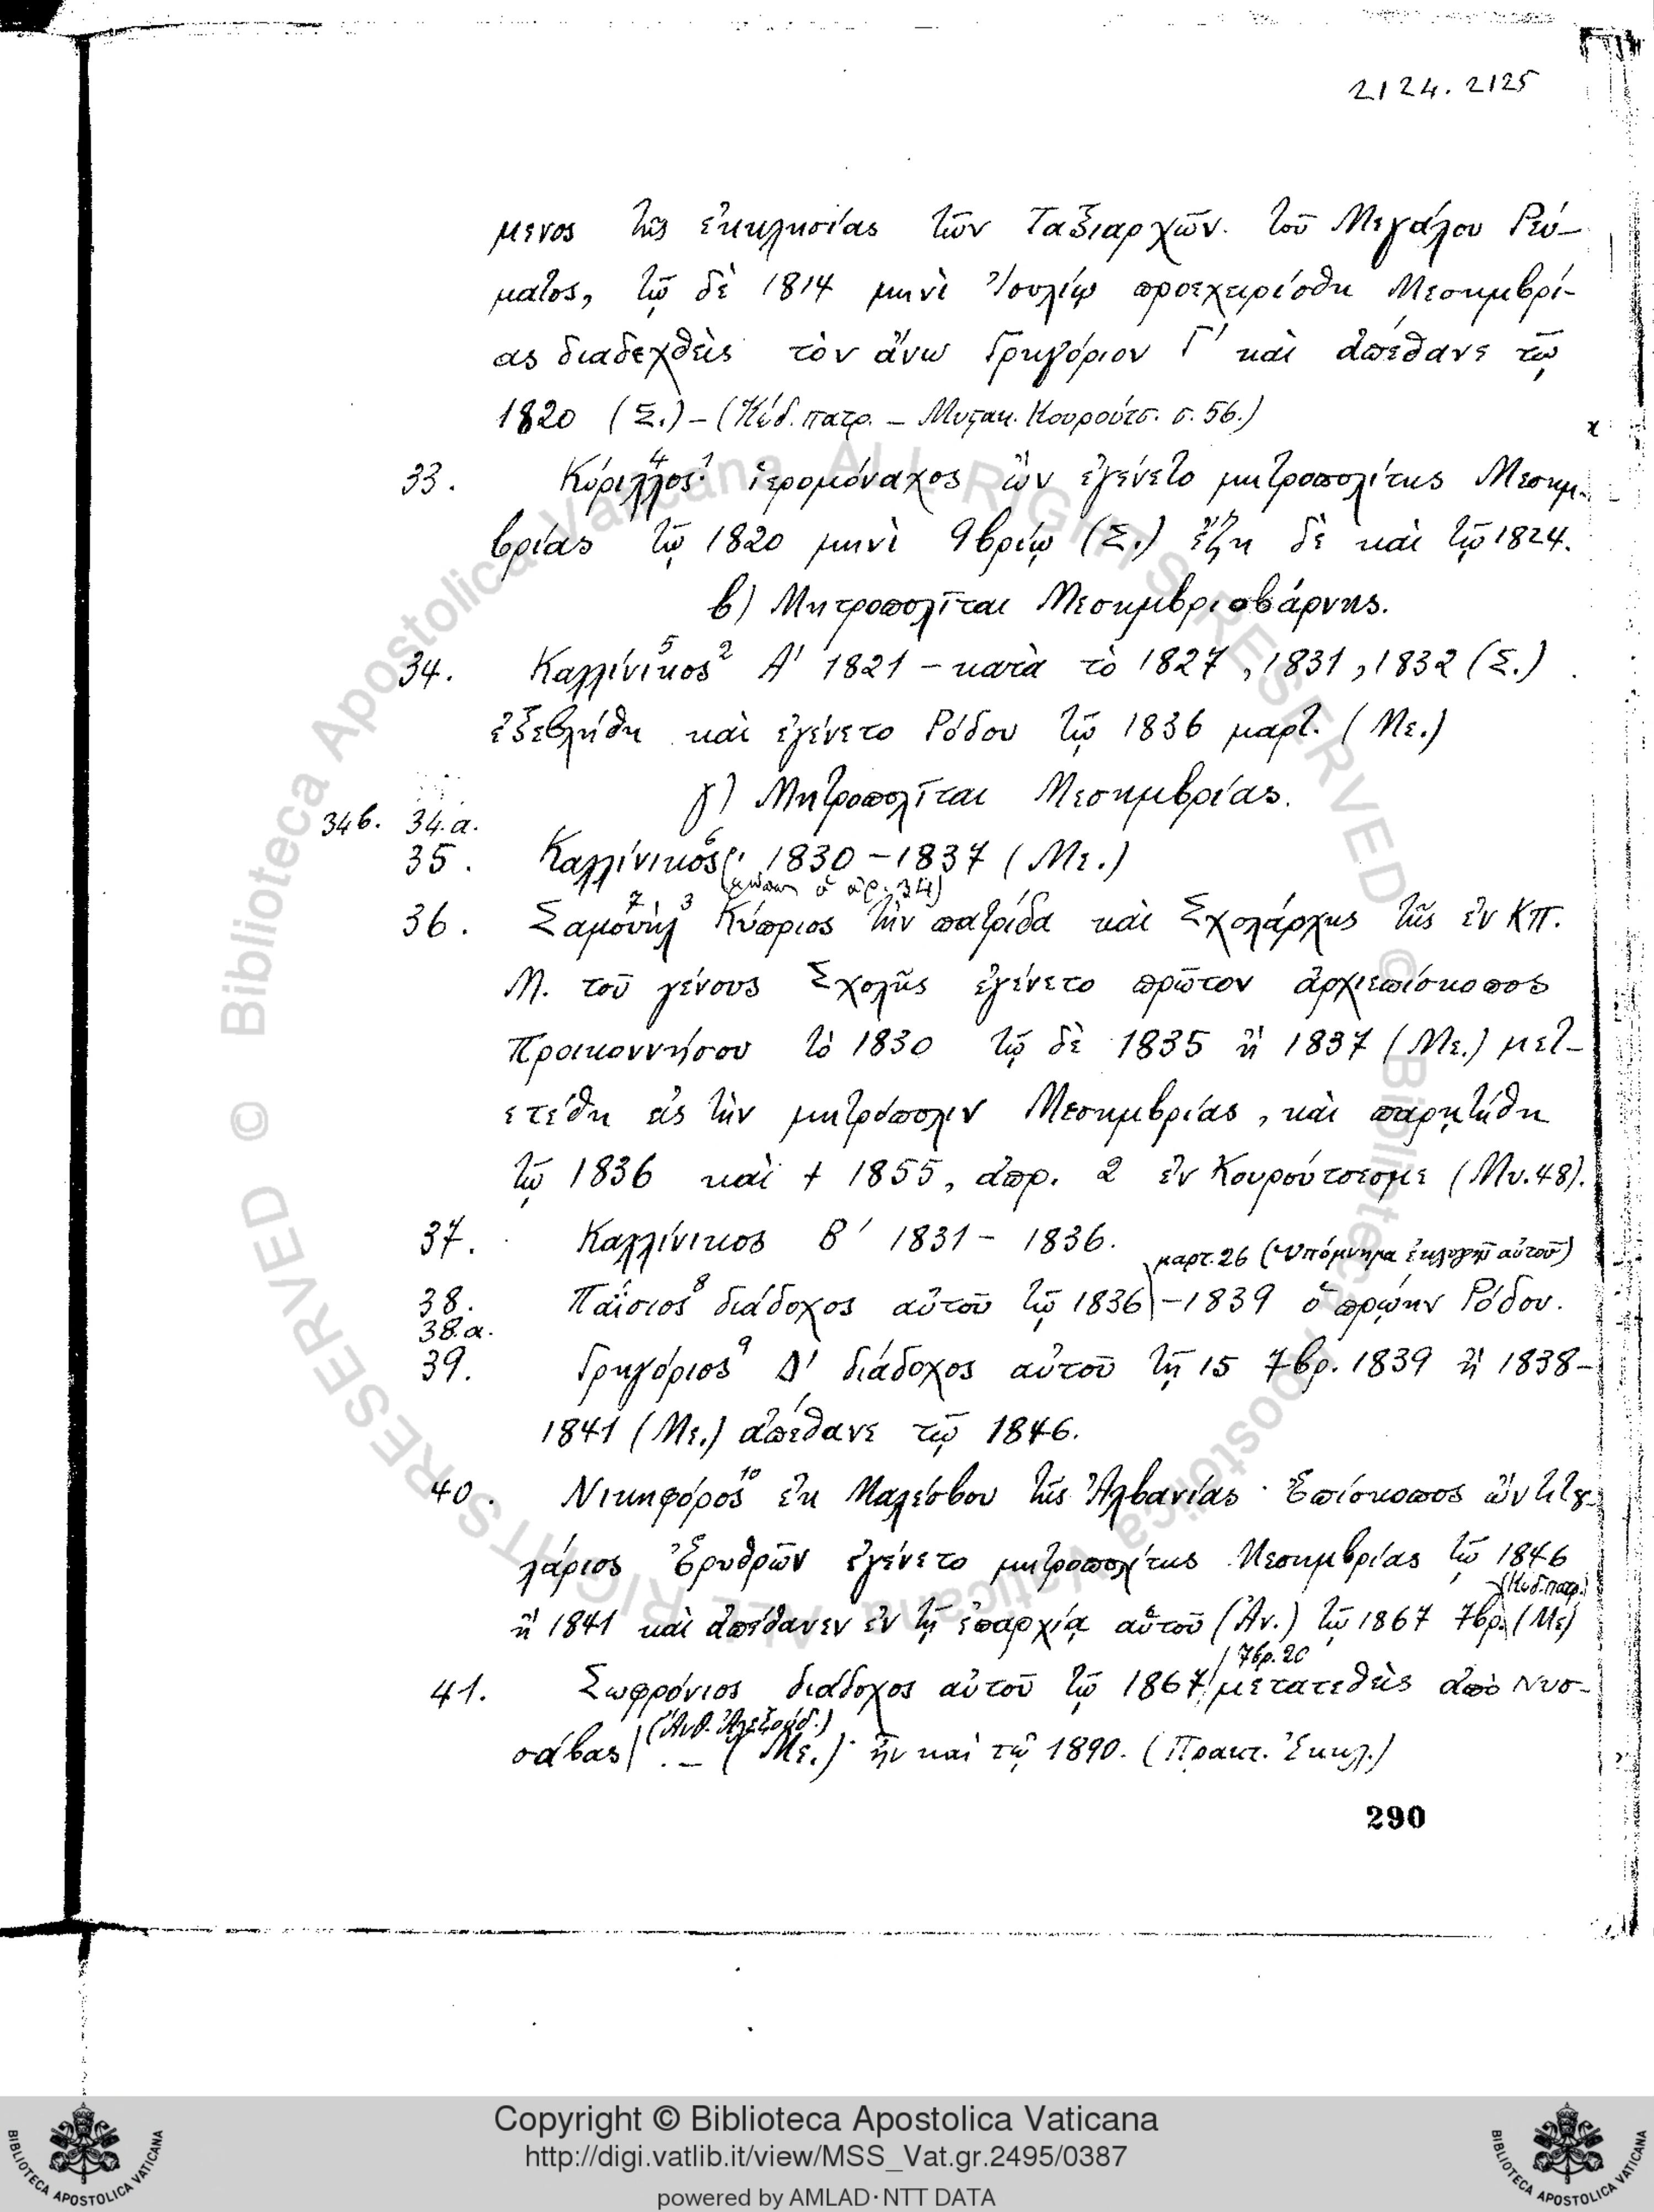 2124. 2125
μενος τῆς ἐκκλησίας τῶν Ταξιαρχῶν τοῦ Μεγάλου Ρεύ-
ματος, τῷ δὲ 1814 μηνὶ Ἰουλίῳ προεχειρίσθη Μεσημβρί-
ας διαδεχθεὶς τὸν ἄνω Γρηγόριον Γ' καὶ ἀπέθανε τῷ
1820 (Σ.) – (Κώδ. πατρ. – Μυστακ. Κουρούτσ. σ. 56.)
33. Κύριλλος 4 1 ἱερομόναχος ὢν ἐγένετο μητροπολίτης Μεσημ-
βρίας τῷ 1820 μηνὶ 9βρίῳ (Σ.) ἔζη δὲ καὶ τῷ 1824.
β) Μητροπολῖται Μεσημβριοβάρνης.
34. Καλλίνικος 5 2 Α' 1821 – κατὰ τὸ 1827, 1831, 1832 (Σ.)
ἐξεβλήθη καὶ ἐγένετο Ρόδου τῷ 1836 μαρτ. (Με.)
γ) Μητροπολῖται Μεσημβρίας.
34β. 34.α.
35. Καλλίνικος 6 1830 – 1837 (Με.)
ὁ ἀρ. 34)
36. Σαμουὴλ 7 3 Κύπριος τὴν πατρίδα καὶ Σχολάρχης τῆς ἐν ΚΠ.
Μ. τοῦ γένους Σχολῆς ἐγένετο πρῶτον ἀρχιεπίσκοπος
Προικοννήσου τὸ 1830 τῷ δὲ 1835 ἢ 1837 (Με.) μετ-
ετέθη εἰς τὴν μητρόπολιν Μεσημβρίας, καὶ παρῃτήθη
τῷ 1836 καὶ † 1855, ἀπρ. 2 ἐν Κουρούτσεσμε (Μυ. 48).
37. Καλλίνικος Β' 1831 – 1836.
μαρτ. 26 (Ὑπόμνημα ἐκλογῆς αὐτοῦ)
38. Παΐσιος 8 διάδοχος αὐτοῦ τῷ 1836 – 1839 ὁ πρώην Ρόδου.
38.α.
39. Γρηγόριος 9 Δ' διάδοχος αὐτοῦ τῇ 15 7βρ. 1839 ἢ 1838 –
1841 (Με.) ἀπέθανε τῷ 1846.
40. Νικηφόρος 10 ἐκ Μαλέσβου τῆς Ἀλβανίας· Ἐπίσκοπος ὢν τιτου-
λάριος Ἐρυθρῶν ἐγένετο μητροπολίτης Μεσημβρίας τῷ 1846
(Κωδ. πατρ.)
ἢ 1841 καὶ ἀπέθανεν ἐν τῇ ἐπαρχίᾳ αὐτοῦ (Ἀν.) τῷ 1867 7βρ. (Με)
7βρ. 20
41. Σωφρόνιος διάδοχος αὐτοῦ τῷ 1867 μετατεθεὶς ἀπὸ Νυσ-
(Ἀνθ. Ἀλεξούδ.)
σάβας . – (Με.) ἦν καὶ τῷ 1890. (Πρακτ. Ἐκκλ.)
290
© Biblioteca Apostolica Vaticana ALL RIGHTS RESERVED © Biblioteca Apostolica Vaticana ALL RIGHTS RESERVED
Copyright © Biblioteca Apostolica Vaticana
http://digi.vatlib.it/view/MSS_Vat.gr.2495/0387
powered by AMLAD·NTT DATA
BIBLIOTECA APOSTOLICA VATICANA
BIBLIOTECA APOSTOLICA VATICANA